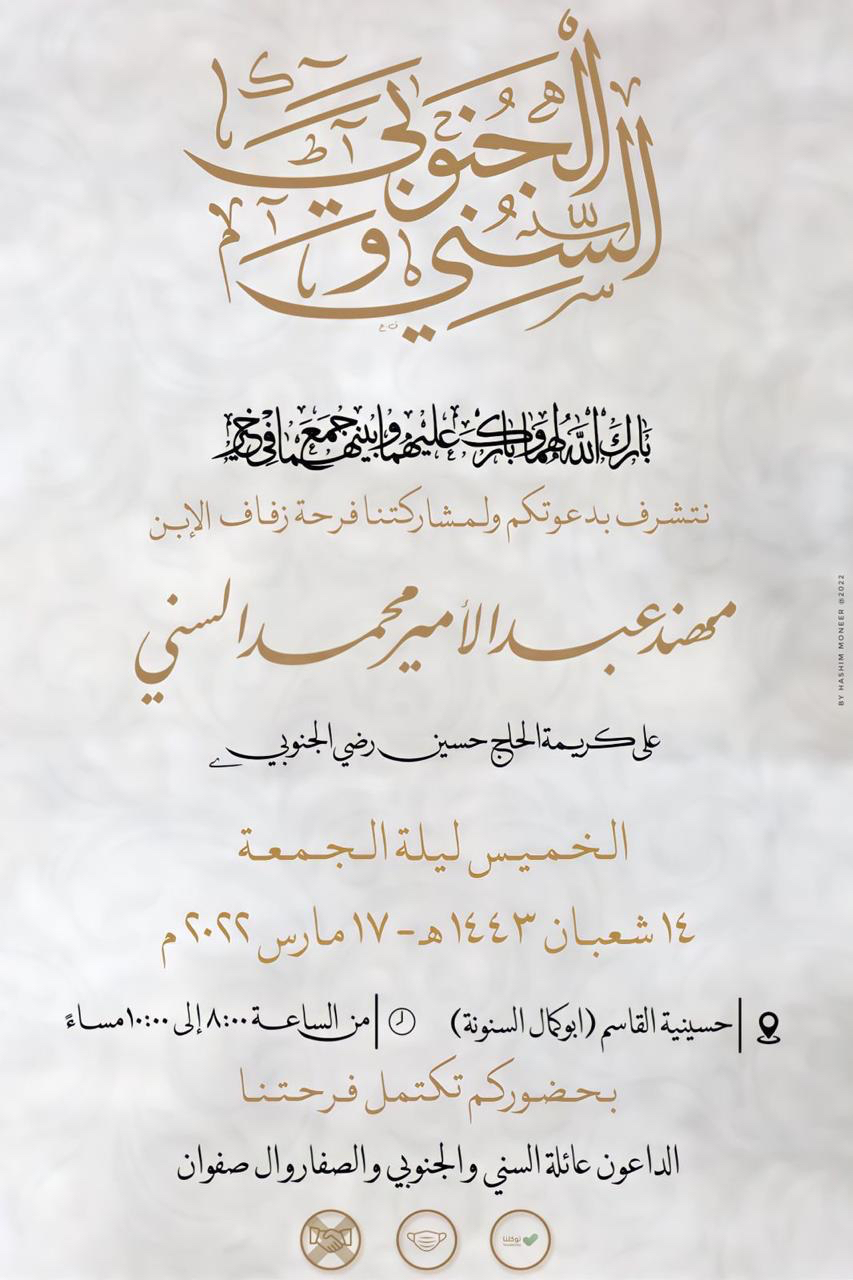 الجنوبي
و السني
بارك الله لهما وبارك عليهما وجمع بينهما في خير
نتشرف بدعوتكم ولمشاركتنا فرحة زفاف الإبن
مهند عبد الأمير محمد السني
على كريمة الحاج حسين رضي الجنوبي
الخميس ليلة الجمعة
١٤ شعبان ١٤٤٣ هـ - ١٧ مارس ٢٠٢٢ م
حسينية القاسم (ابوكمال السنونة) | من الساعة ٨:٠٠ إلى ١٠:٠٠ مساءً
بحضوركم تكتمل فرحتنا
الداعون عائلة السني والجنوبي والصفار وال صفوان
توكلنا
BY HASHIM MONEER @2022